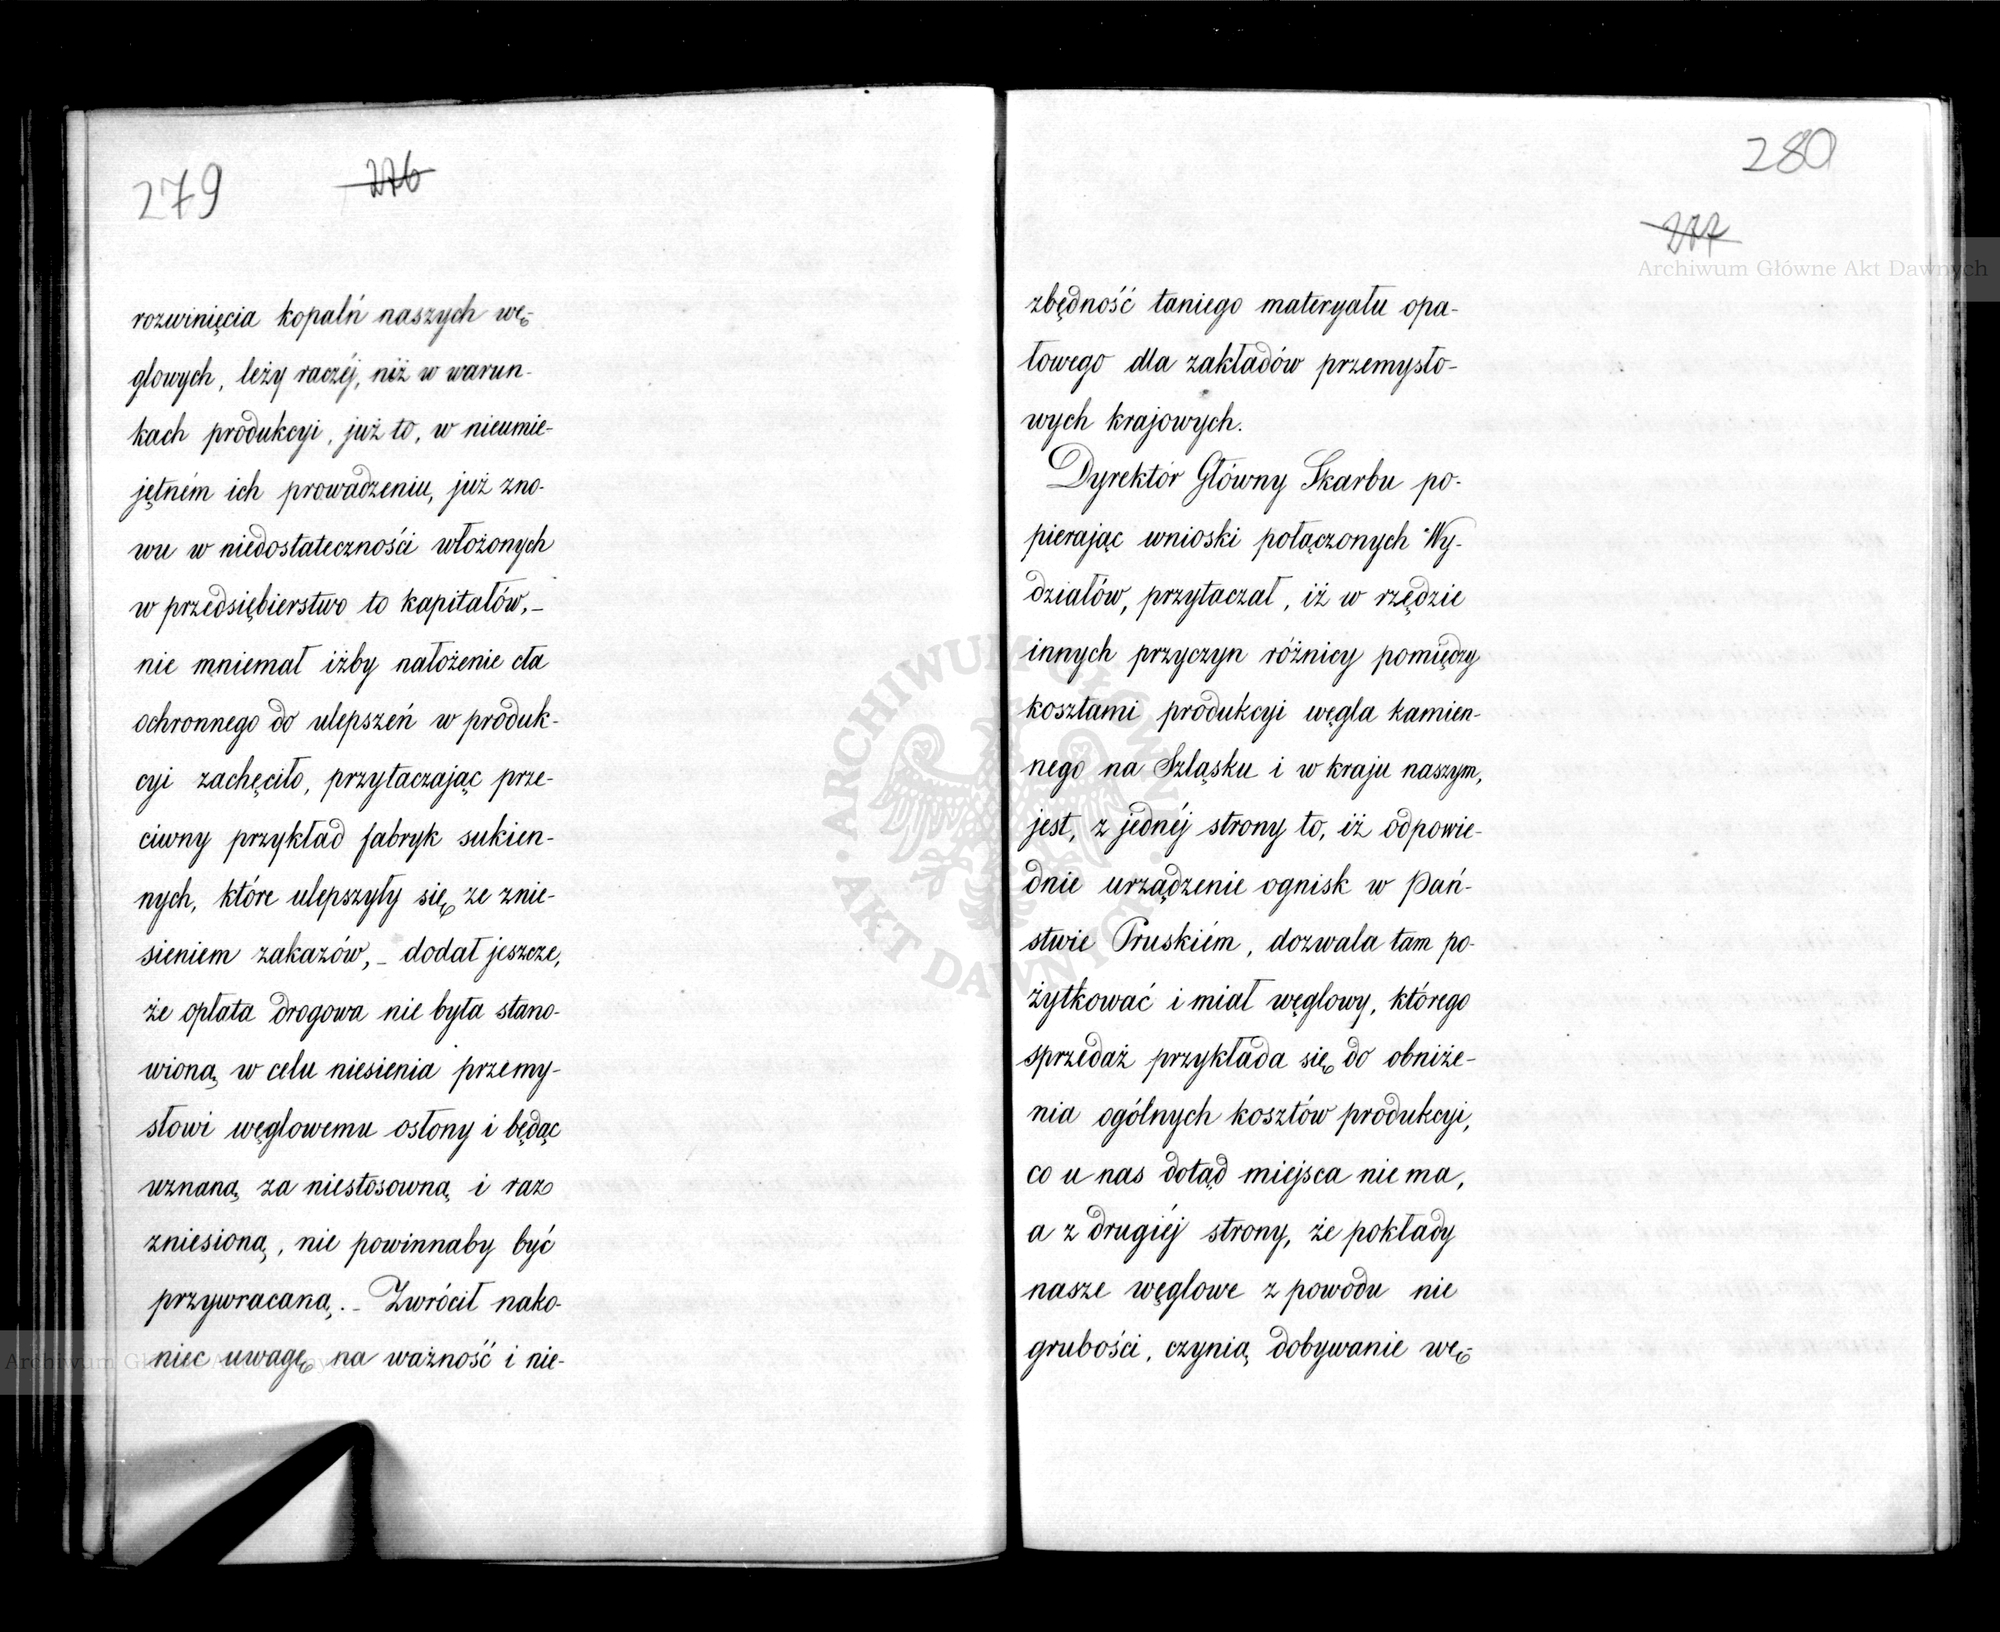 279
276
rozwinięcia kopalń naszych wę-
glowych, leży raczéj, niż w warun-
kach produkcyi, już to, w nieumie-
jętném ich prowadzeniu, już zno-
wu w niedostateczności włożonych
w przedsiębierstwo to kapitałów,_
nie mniemał iżby nałożenie cła
ochronnego do ulepszeń w produk-
cyi zachęciło, przytaczając prze-
ciwny przykład fabryk sukien-
nych, które ulepszyły się ze znie-
sieniem zakazów,_ dodał jeszcze,
że opłata drogowa nie była stano-
wioną w celu niesienia przemy-
słowi węglowemu osłony i będąc
uznaną za niestosowną i raz
zniesioną, nie powinnaby być
przywracaną._ Zwrócił nako-
niec uwagę na ważność i nie-
280
277
zbędność taniego materyału opa-
łowego dla zakładów przemysło-
wych krajowych.
Dyrektór Główny Skarbu po-
pierając wnioski połączonych Wy-
działów, przytaczał, iż w rzędzie
innych przyczyn różnicy pomiędzy
kosztami produkcyi węgla kamien-
nego na Szląsku i w kraju naszym,
jest, z jednéj strony to, iż odpowie-
dnie urządzenie ognisk w Pań-
stwie Pruskiém, dozwala tam po-
żytkować i miał węglowy, którego
sprzedaż przykłada się do obniże-
nia ogólnych kosztów produkcyi,
co u nas dotąd miejsca nie ma,
a z drugiéj strony, że pokłady
nasze węglowe z powodu nie
grubości, czynią dobywanie wę-
Archiwum Główne Akt Dawnych
ARCHIWUM GŁÓWNE AKT DAWNYCH